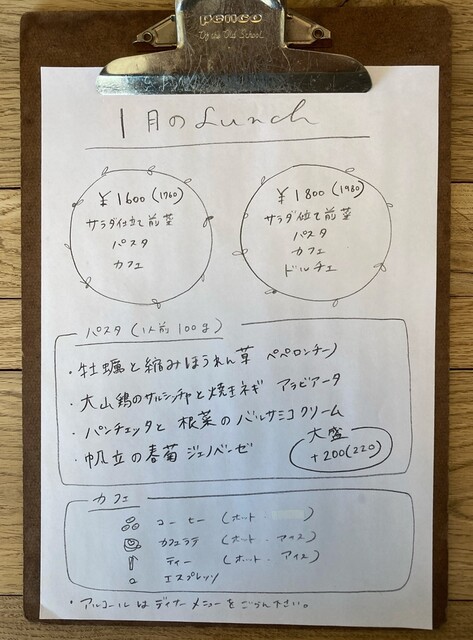 penco
By the Old School
1月のLunch
¥1600(1760)
サラダ仕立て前菜
パスタ
カフェ
¥1800(1980)
サラダ仕立て前菜
パスタ
カフェ
ドルチェ
パスタ(1人前 100g)
・牡蠣と縮みほうれん草 ペペロンチーノ
・大山鶏のサルシッチャと焼きネギ アラビアータ
・パンチェッタと根菜のバルサミコクリーム
・帆立の春菊ジェノベーゼ
大盛
+200(220)
カフェ
コーヒー(ホット・
カフェラテ(ホット・アイス)
ティー(ホット・アイス)
エスプレッソ
・アルコールはディナーメニューをごらん下さい。